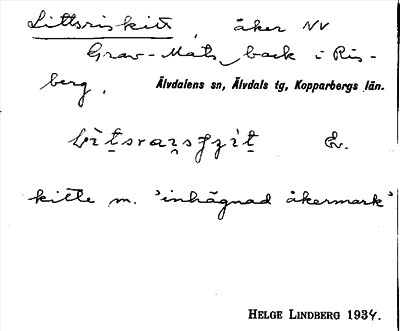 Littsriskitt, åker NV
Grav-Mats back i Ris-
berg. Älvdalens sn, Älvdals tg, Kopparbergs län.
kitte m. 'inhägnad åkermark'
HELGE LINDBERG 1934.